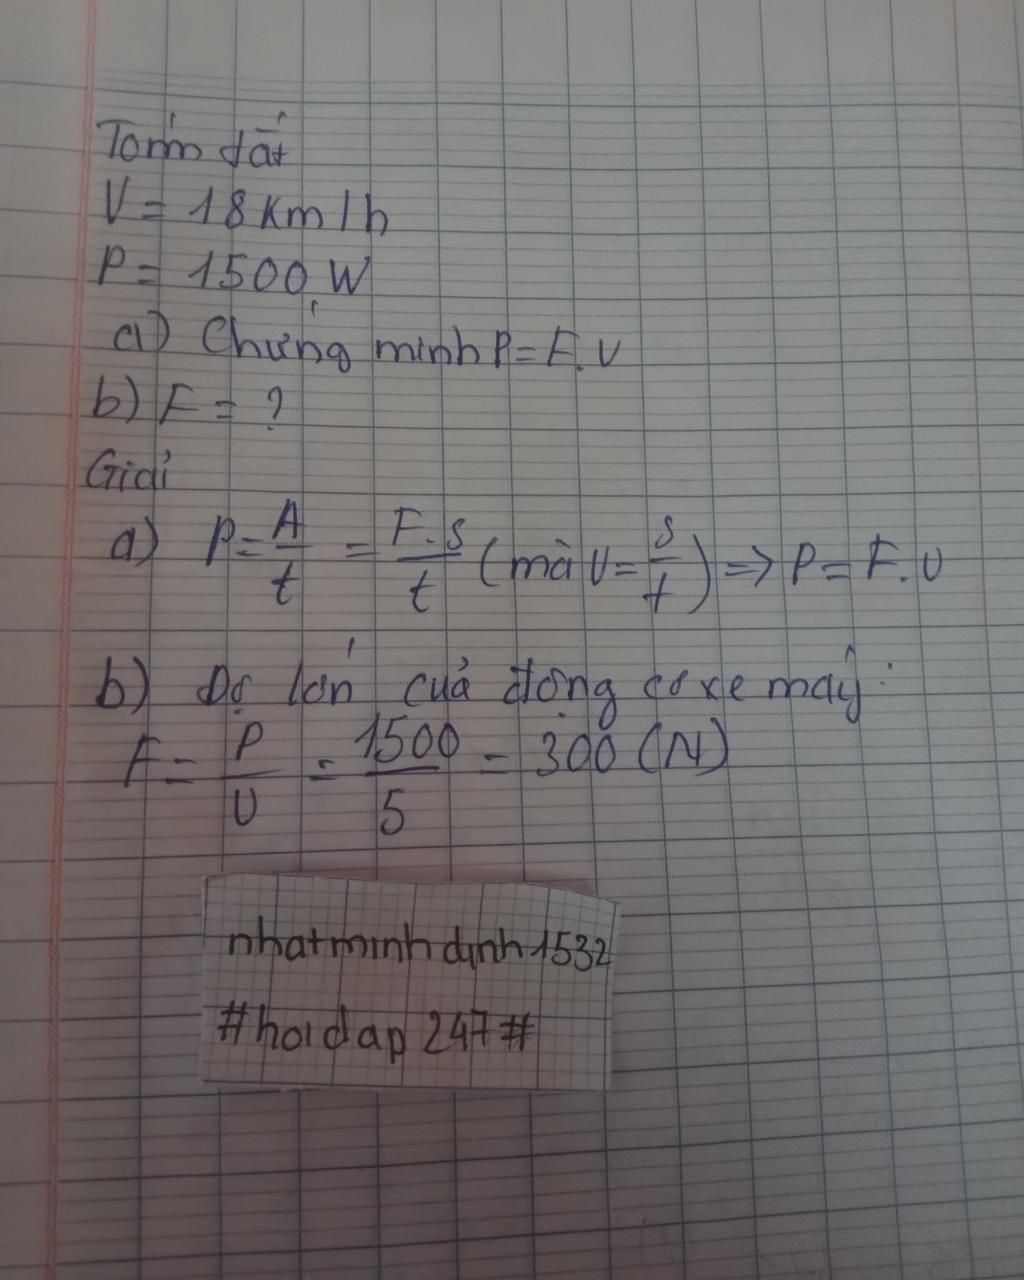 Tóm tắt
V = 18 km/h
P = 1500 W
a) Chứng minh P = F.v
b) F = ?
Giải
a) P = A/t = F.s/t (mà v = s/t) => P = F.v
b) Độ lớn của động cơ xe máy:
F = P/v = 1500/5 = 300 (N)
nhatminhdinh1532
#hoidap247#